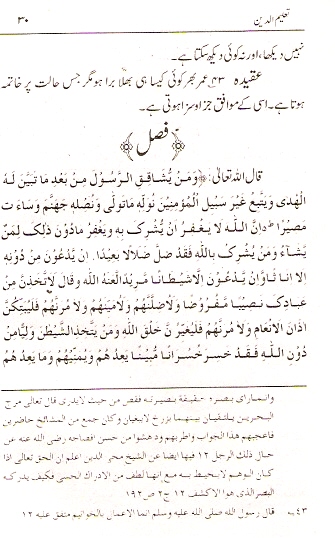 ۳۰ تعلیم الدین
نہیں دیکھا، اور نہ کوئی دیکھ سکتا ہے۔
عقیدہ ۴۳۔ عمر بھر کوئی کیسا ہی بھلا برا ہو مگر جس حالت پر خاتمہ
ہوتا ہے۔ اسی کے موافق جزا و سزا ہوتی ہے۔
﴿فصل﴾
قال اللہ تعالیٰ: ﴿وَمَنْ يُّشَاقِقِ الرَّسُوْلَ مِنْ بَعْدِ مَا تَبَيَّنَ لَهُ
الْهُدٰى وَيَتَّبِعْ غَيْرَ سَبِيْلِ الْمُؤْمِنِيْنَ نُوَلِّهٖ مَاتَوَلّٰى وَنُصْلِهٖ جَهَنَّمَ وَسَآءَتْ
مَصِيْرًا ۔ اِنَّ اللّٰهَ لَا يَغْفِرُ اَنْ يُّشْرَكَ بِهٖ وَيَغْفِرُ مَادُوْنَ ذٰلِكَ لِمَنْ
يَّشَآءُ وَمَنْ يُّشْرِكْ بِاللّٰهِ فَقَدْ ضَلَّ ضَلٰلًا بَعِيْدًا. اِنْ يَّدْعُوْنَ مِنْ دُوْنِهٖ
اِلَّا اِنَاثًا وَاِنْ يَّدْعُوْنَ اِلَّاشَيْطَانًا مَّرِيْدًا لَّعَنَهُ اللّٰهُ وَقَالَ لَاَتَّخِذَنَّ مِنْ
عِبَادِكَ نَصِيْبًا مَّفْرُوْضًا وَّلَاُضِلَّنَّهُمْ وَلَاُمَنِّيَنَّهُمْ وَلَاٰمُرَنَّهُمْ فَلَيُبَتِّكُنَّ
اٰذَانَ الْاَنْعَامِ وَلَاٰمُرَنَّهُمْ فَلَيُغَيِّرُنَّ خَلْقَ اللّٰهِ وَمَنْ يَّتَّخِذِ الشَّيْطٰنَ وَلِيًّا مِّنْ
دُوْنِ اللّٰهِ فَقَدْ خَسِرَ خُسْرَانًا مُّبِيْنًا يَعِدُهُمْ وَيُمَنِّيْهِمْ وَمَا يَعِدُهُمُ
بصره حقيقة بصيرته فقص من حيث لايدرى قال تعالى مرج
البحرين يلتقيان بينهما برزخ لا يبغيان وكان جمع من المشائخ حاضرين
فاعجبهم هذا الجواب واطربهم ودهشوا من حسن افصاحه رضى الله عنه عن
حال ذلك الرجل ۱۲ فيها ايضا عن الشيخ محى الدين اعلم ان الحق تعالى اذا
كان الوهم لا يحيط به مع انها لطف من الادراك الحسى فكيف يدركه
البصر الذى هو الاكشف ۱۲ ج۲ ص۱۹۲
۴۳؎ قال رسول الله صلى الله عليه وسلم انما الاعمال بالخواتيم متفق عليه ۱۲